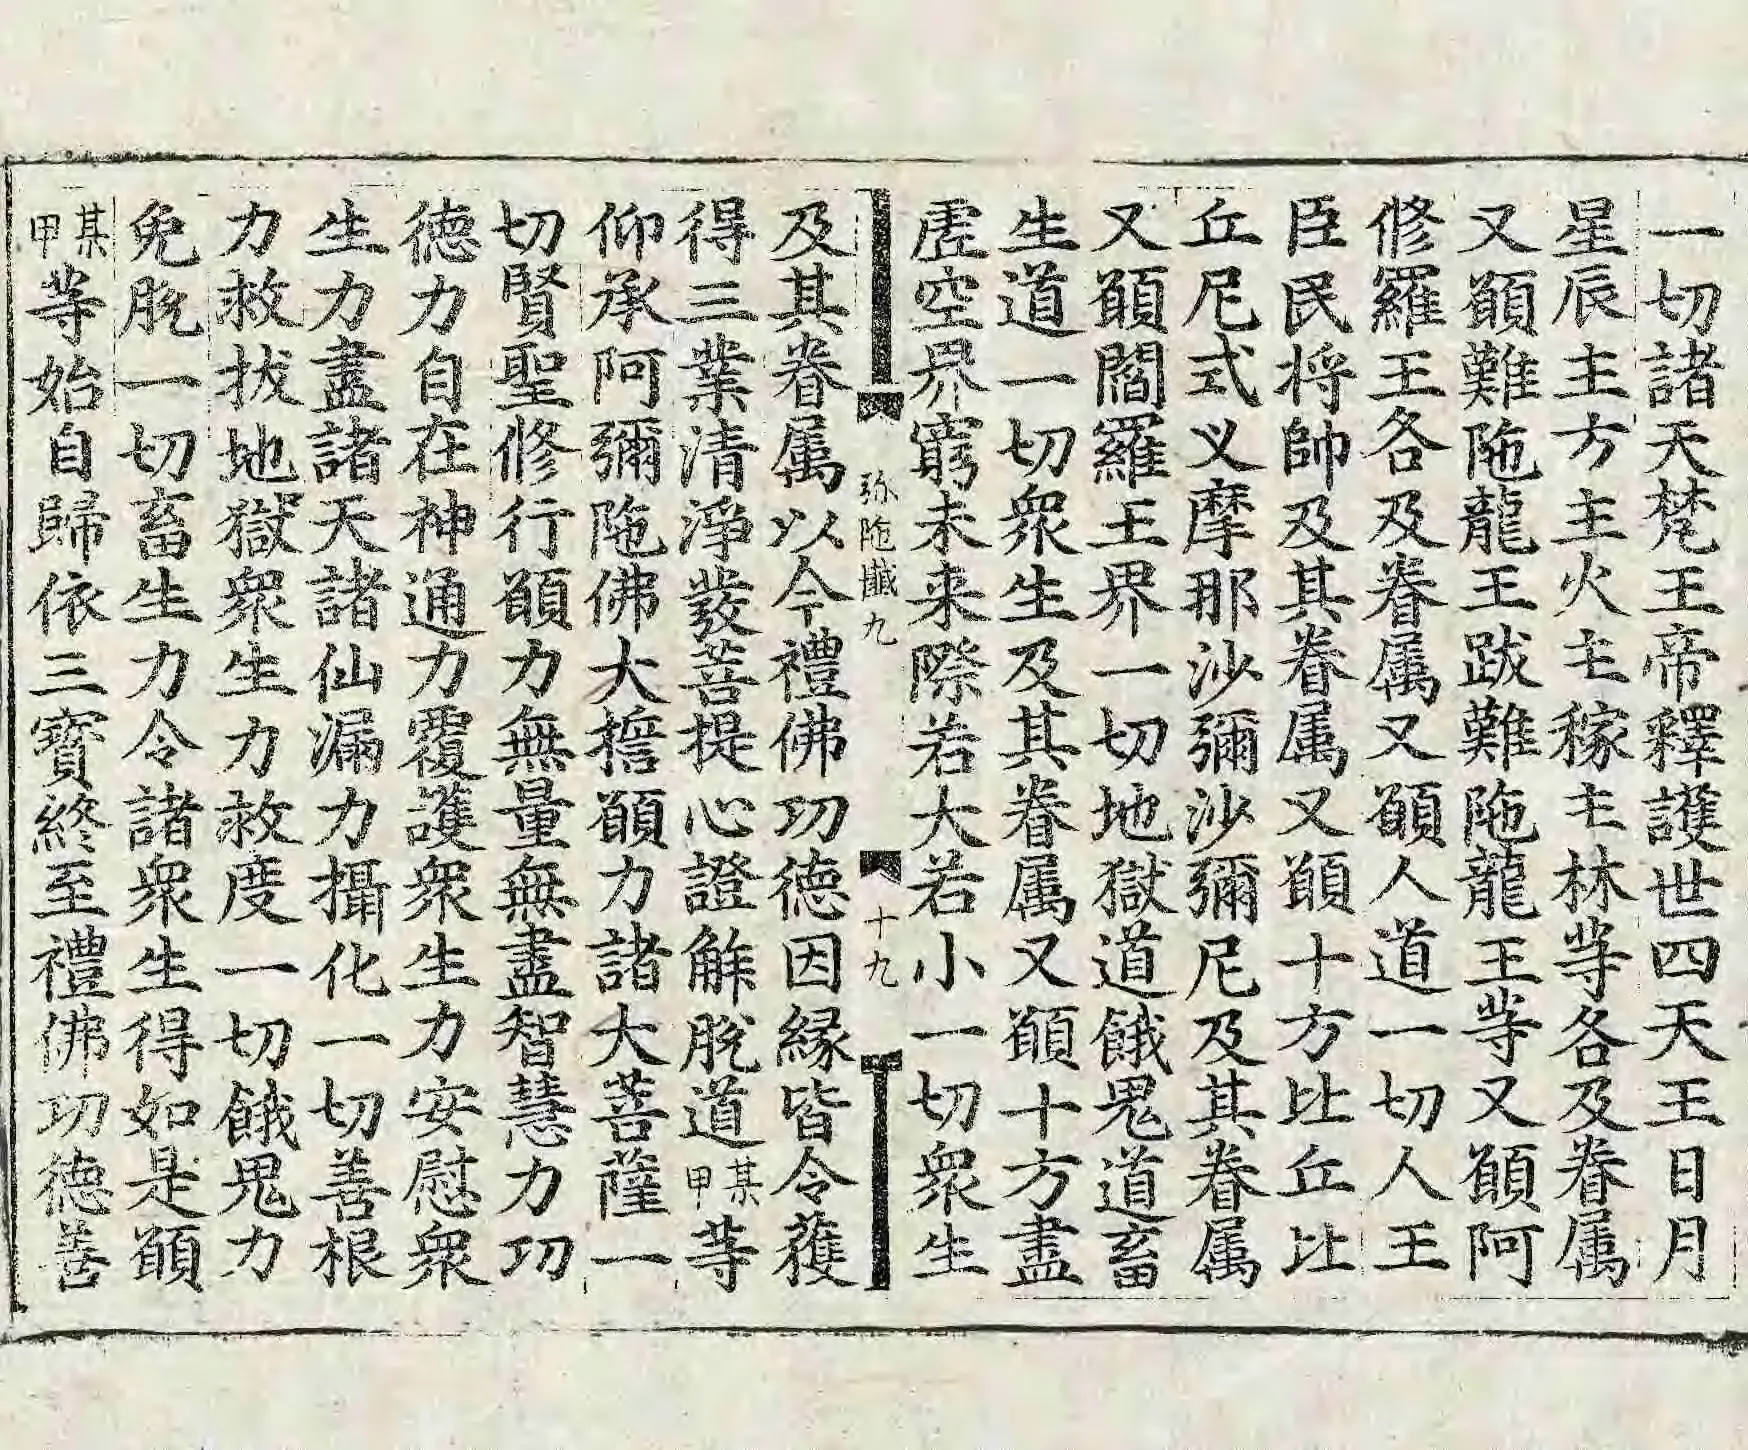 一切諸天梵王帝釋護世四天王日月
星辰主方主火主稼主林等各及眷属
又願難陁龍王跋難陁龍王等又願阿
修羅王各及眷属又願人道一切人王
臣民将帥及其眷属又願十方比丘比
丘尼式义摩那沙彌沙彌尼及其眷属
又願閻羅王界一切地獄道餓鬼道畜
生道一切衆生及其眷属又願十方盡
虗空界窮未来際若大若小一切衆生
弥陁懺九
十九
及其眷属以今禮佛功德因縁皆令蒦
得三業清淨發菩提心證解脫道某甲等
仰承阿彌陁佛大擔願力諸大菩薩一
切賢聖修行願力無量無盡智慧力功
德力自在神通力覆護衆生力安慰衆
生力盡諸天諸仙漏力攝化一切善根
力救拔地獄衆生力救度一切餓鬼力
免脫一切畜生力令諸衆生得如是願
某甲等始自歸依三寶終至禮佛功德善